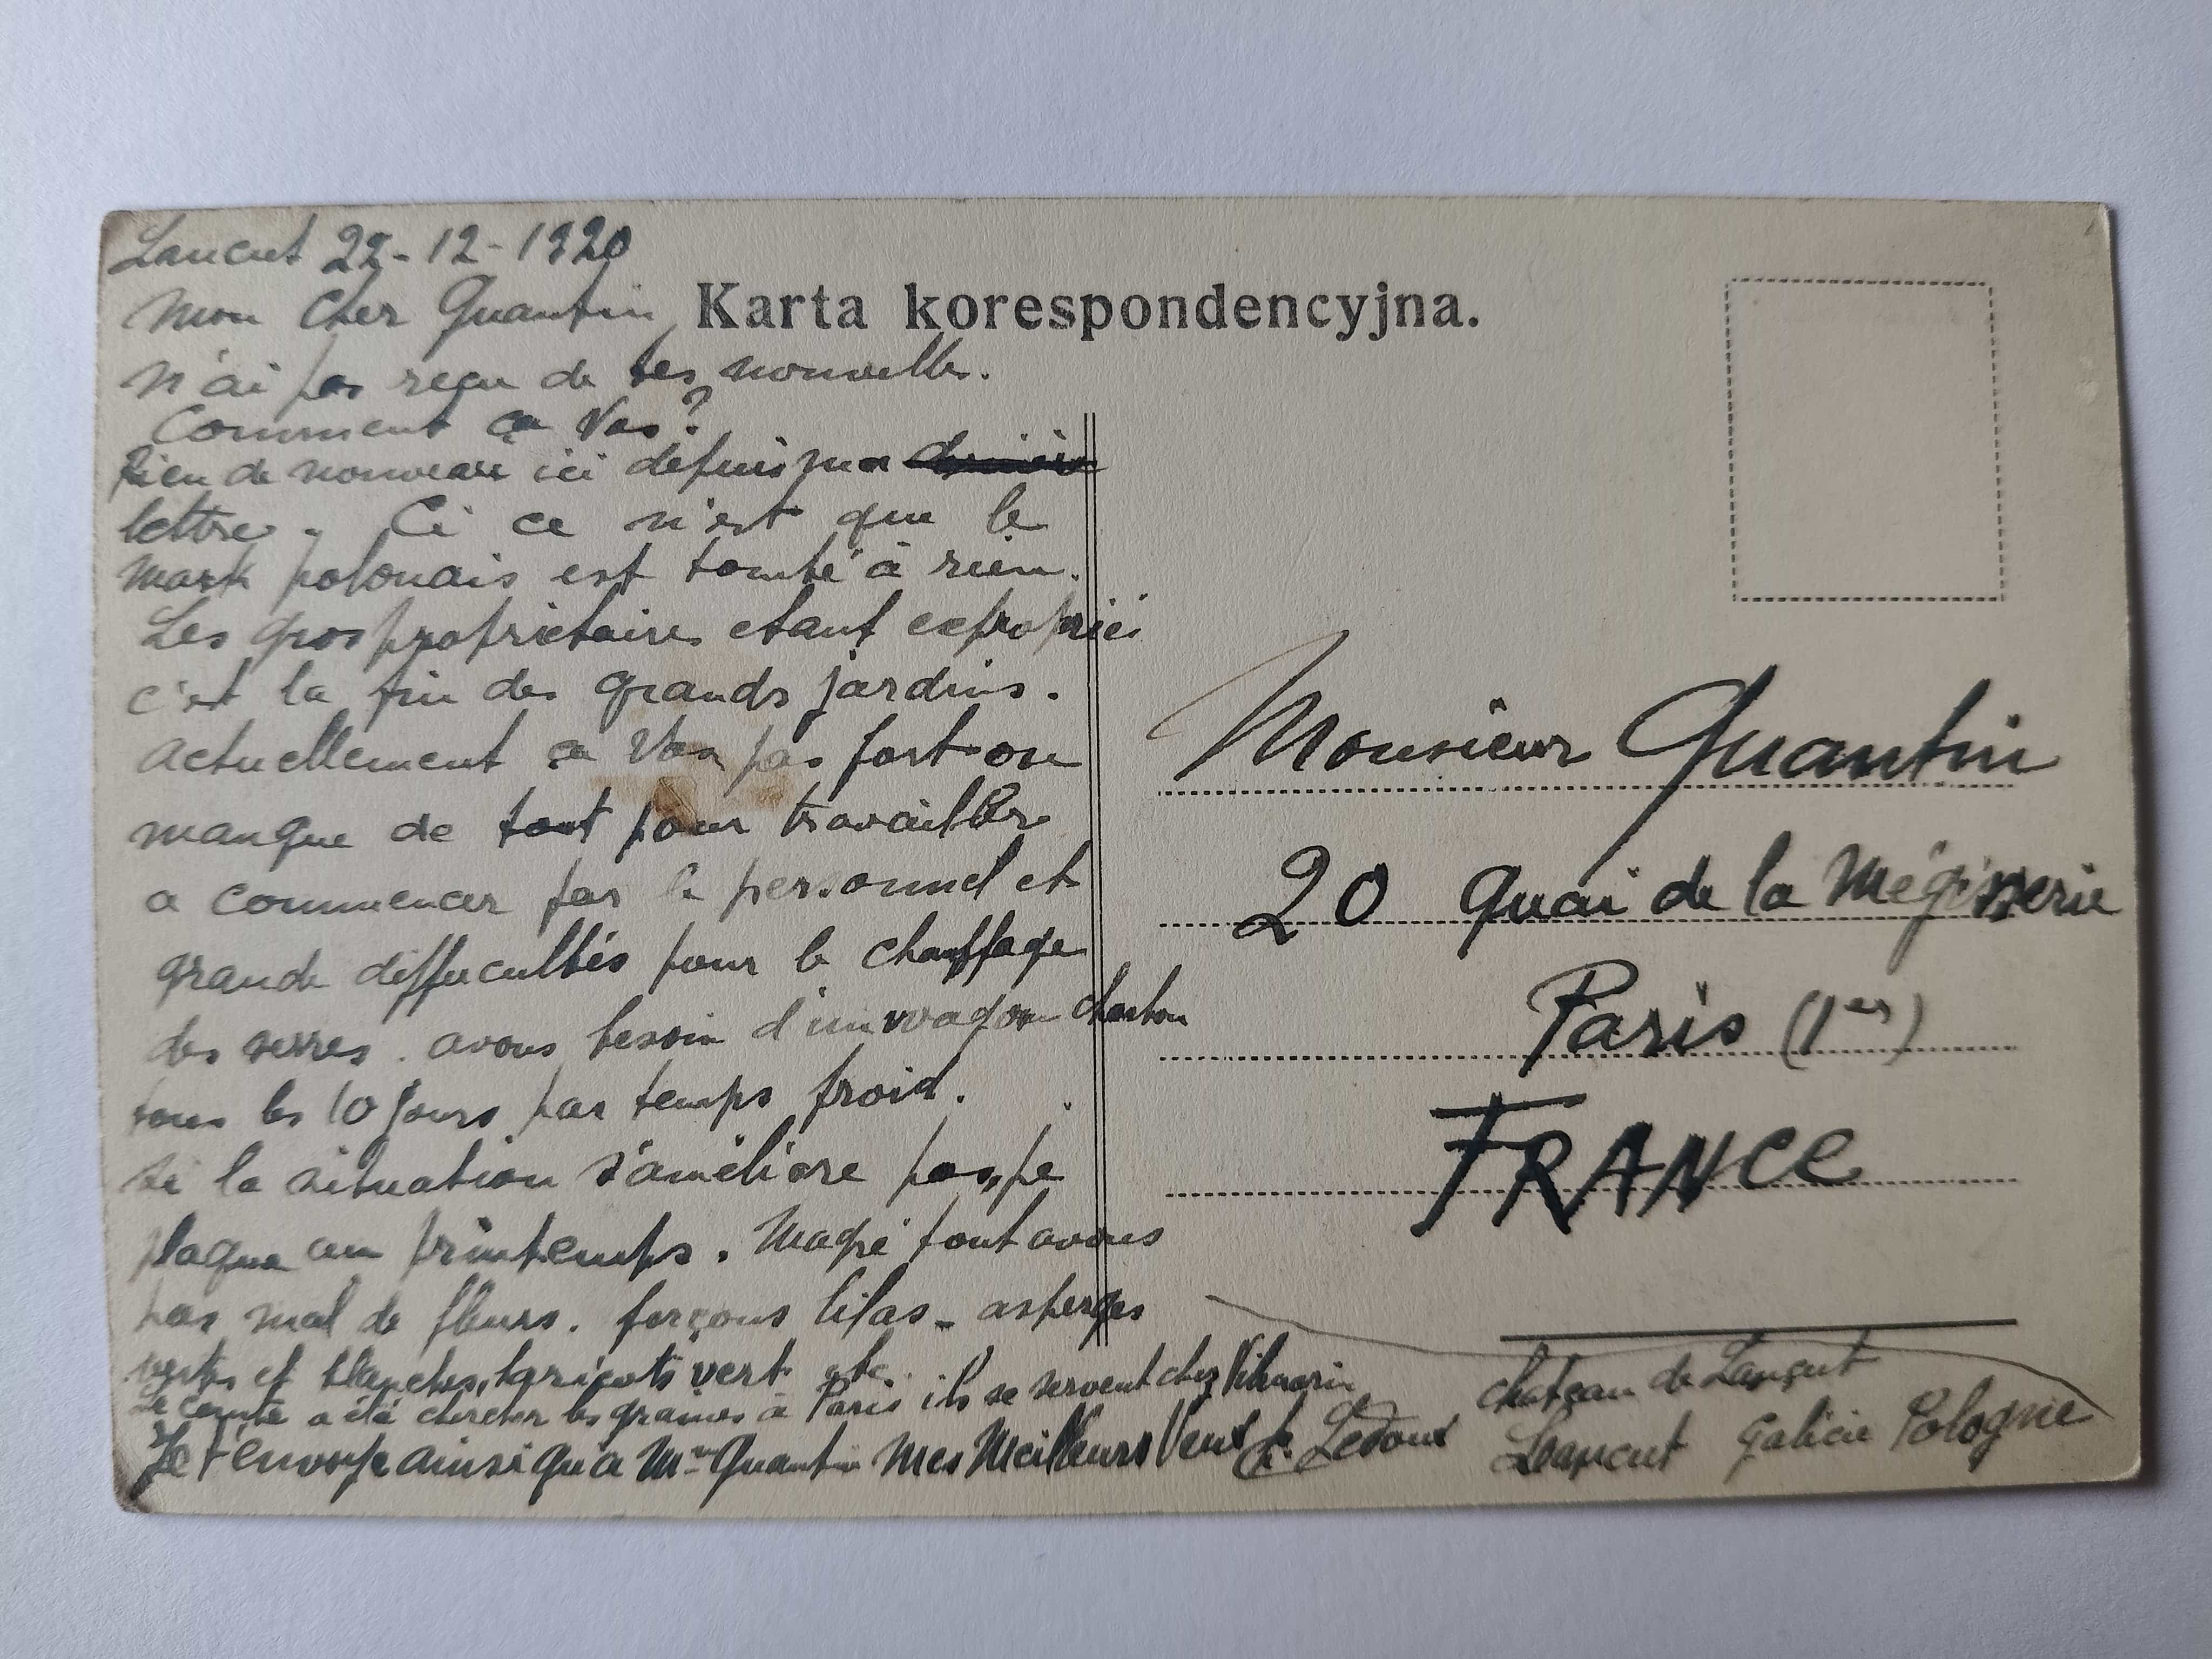 Lancut 22-12-1920
Mon Cher Quantin
Karta korespondencyjna.
n'ai pas reçu de tes nouvelles.
Comment ça Vas?
Rien de nouveau ici depuis ma
lettre. Ci ce n'est que le
mark polonais est tombé à rien.
Les gros proprietaires etant expropriés
c'est la fin des grands jardins.
actuellement ça Vas pas fort on
manque de tout pour travailler
a commencer par le personnel et
grande difficultés pour le chauffage
des serres. avons besoin d'un wagon charbon
tous les 10 jours par temps froid.
si la situation s'améliore pas, je
plaque au printemps. Magré tout avons
pas mal de fleurs. forçons lilas - asperges
vertes et blanches, haricots vert etc.
Le comte a été chercher les graines à Paris ils se servent chez Vilmorin
Je t'envoye ainsi qu'à Mme Quantin mes Meilleurs Veux Ledoux
Monsieur Quantin
20 Quai de la Mégisserie
Paris (1er)
FRANCE
chateau de Lançut
Lancut Galicie Pologne